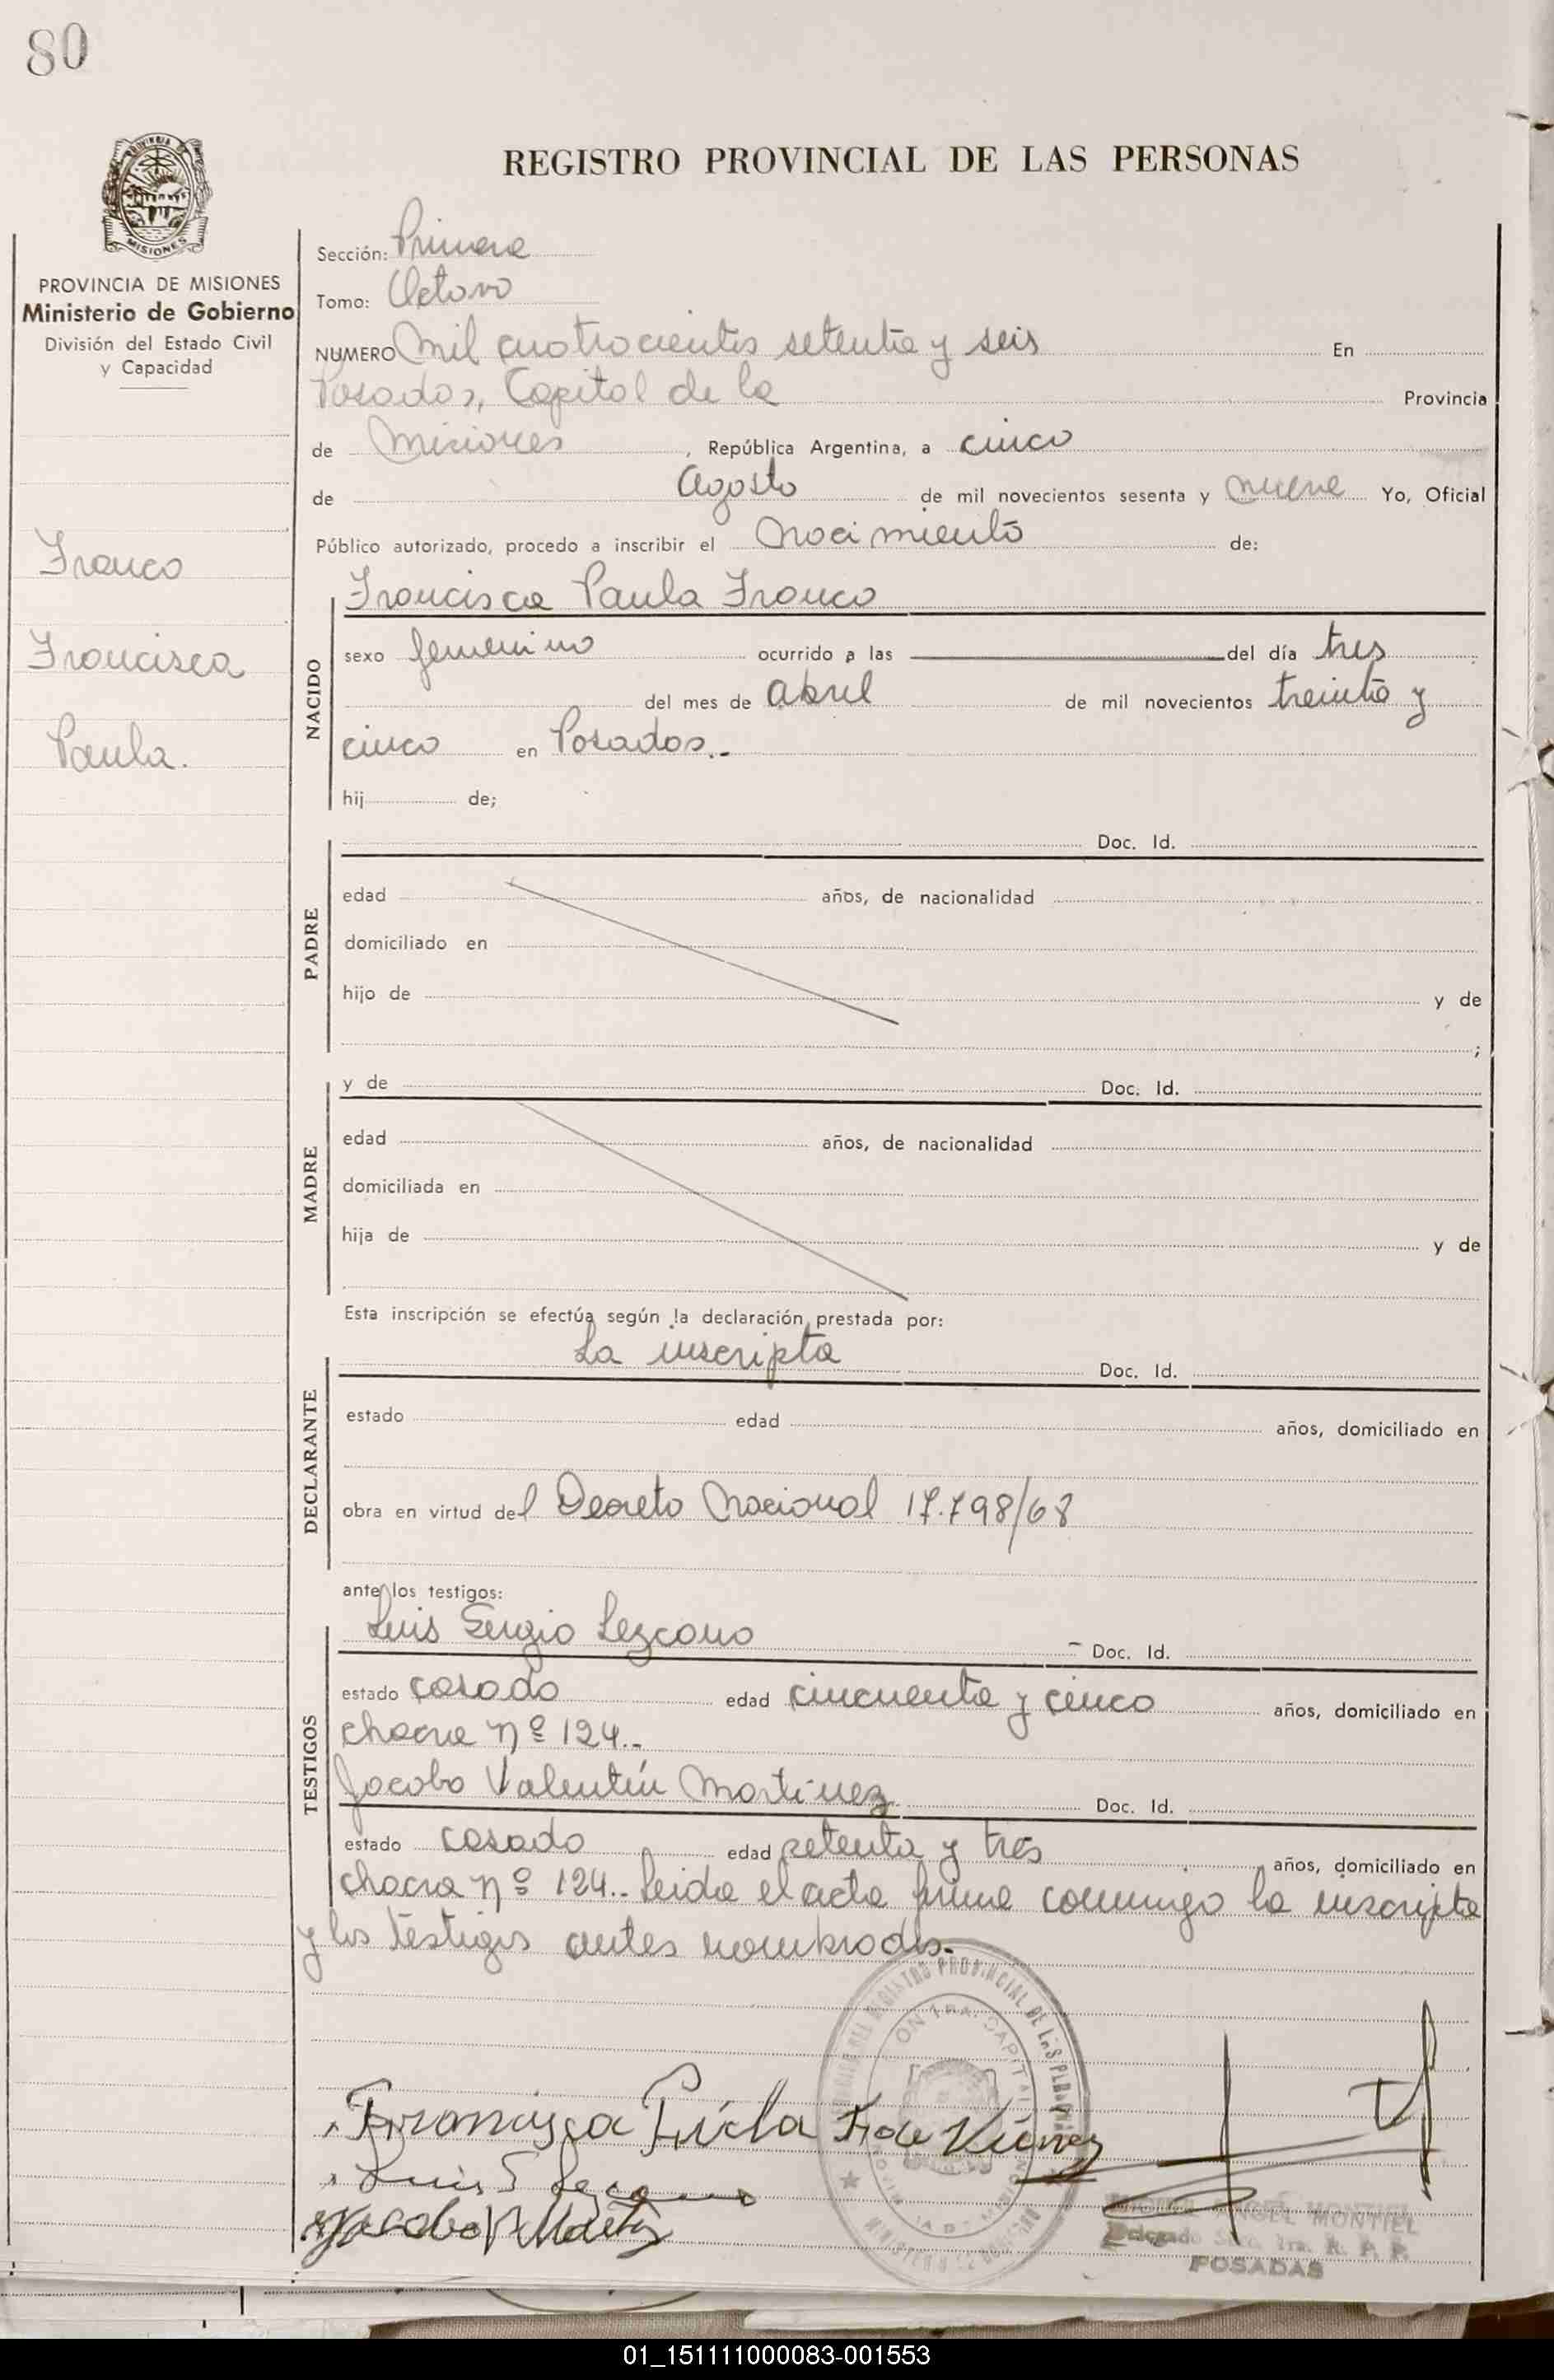 80
REGISTRO PROVINCIAL DE LAS PERSONAS
PROVINCIA DE MISIONES
Ministerio de Gobierno
División del Estado Civil
y Capacidad
Franco
Francisca
Paula.
Sección: Primera
Tomo: Octavo
NUMERO mil cuatrocientos setenta y seis En
Posadas, Capital de la Provincia
de Misiones, República Argentina, a cinco
de Agosto de mil novecientos sesenta y nueve Yo, Oficial
Público autorizado, procedo a inscribir el nacimiento de:
NACIDO
Francisca Paula Franco
sexo femenino ocurrido a las del día tres
del mes de abril de mil novecientos treinta y
cinco en Posadas.-
hij de;
PADRE
Doc. Id.
edad años, de nacionalidad
domiciliado en
hijo de y de
;
MADRE
y de Doc. Id.
edad años, de nacionalidad
domiciliada en
hija de y de
Esta inscripción se efectúa según la declaración prestada por:
DECLARANTE
La inscripta Doc. Id.
estado edad años, domiciliado en
obra en virtud del Decreto Nacional 17.798/68
ante los testigos:
TESTIGOS
Luis Sergio Lezcano Doc. Id.
estado casado edad cincuenta y cinco años, domiciliado en
chacra Nº 124.-
Jacobo Valentín Martinez Doc. Id.
estado casado edad setenta y tres años, domiciliado en
chacra nº 124.- Leida el acta firma conmigo la inscripta
y los testigos antes nombrados.-
Francisca Paula F. de Núnez
Luis S Lezcano
Jacobo V Martinez
ANGEL MONTIEL
Delegado Secc. 1ra. R. P. P.
POSADAS
01_151111000083-001553